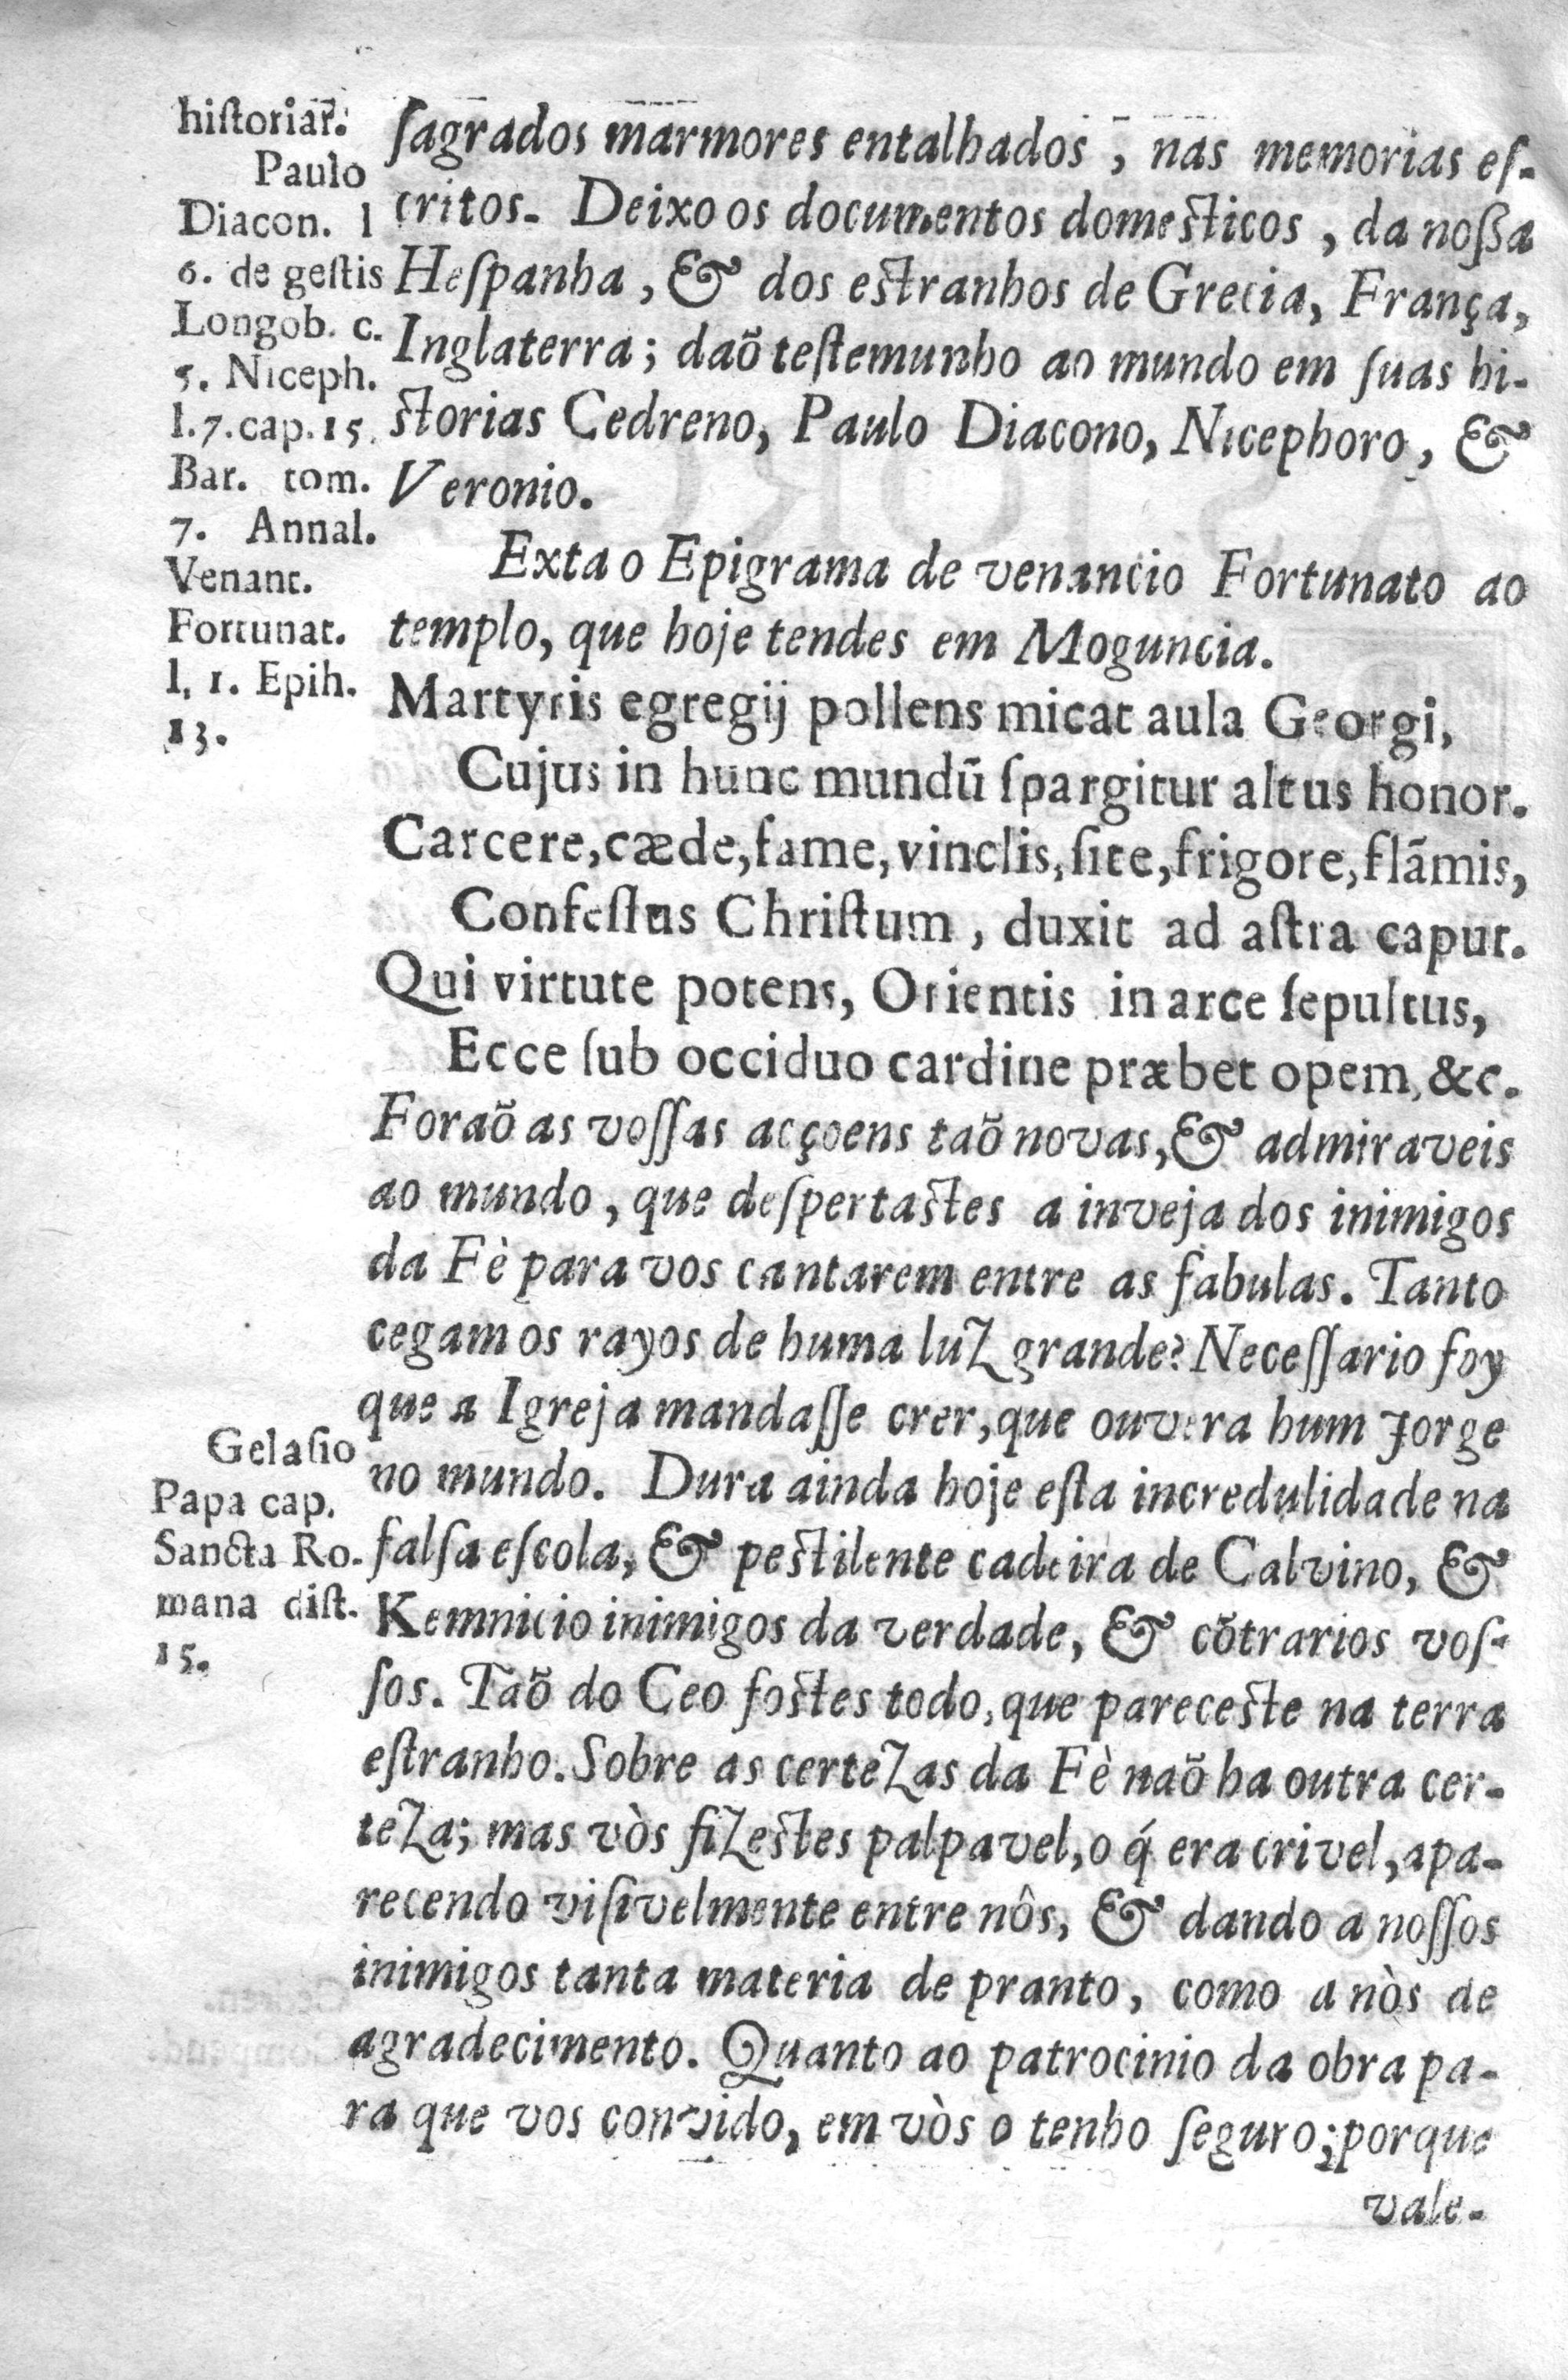 hiſtoriar.
Paulo
Diacon. l
6. de geſtis
Longob. c.
5. Niceph.
l.7.cap.15.
Bar. tom.
7. Annal.
Venant.
Fortunat.
l, 1. Epih.
13.
ſagrados marmores entalhados, nas memorias eſ-
critos. Deixo os documentos domeſticos, da noſſa
Heſpanha, & dos eſtranhos de Grecia, França,
Inglaterra; daõ teſtemunho ao mundo em ſuas hi-
ſtorias Cedreno, Paulo Diacono, Nicephoro, &
Veronio.
Exta o Epigrama de venancio Fortunato ao
templo, que hoje tendes em Moguncia.
Martyris egregij pollens micat aula Georgi,
Cujus in hunc mundũ ſpargitur altus honor.
Carcere, cæde, fame, vinclis, ſite, frigore, flãmis,
Confeſtus Chriſtum, duxit ad aſtra caput.
Qui virtute potens, Orientis in arce ſepultus,
Ecce ſub occiduo cardine præbet opem, &c.
Foraõ as voſſas acçoens taõ novas, & admiraveis
ao mundo, que deſpertaſtes a inveja dos inimigos
da Fè para vos cantarem entre as fabulas. Tanto
cegam os rayos de huma luz grande? Neceſſario foy
que a Igreja mandaſſe crer, que ouvera hum Jorge
no mundo. Dura ainda hoje eſta incredulidade na
falſa eſcola, & peſtilente cadeira de Calvino, &
Kemnicio inimigos da verdade, & cõtrarios voſ-
ſos. Taõ do Ceo foſtes todo, que pareceſte na terra
eſtranho. Sobre as certezas da Fè naõ ha outra cer-
teza; mas vòs fizeſtes palpavel, o q́ era crivel, apa-
recendo viſivelmente entre nôs, & dando a noſſos
inimigos tanta materia de pranto, como a nòs de
agradecimento. Quanto ao patrocinio da obra pa-
ra que vos convido, em vòs o tenho ſeguro; porque
vale-
Gelaſio
Papa cap.
Sancta Ro-
mana diſt.
15.